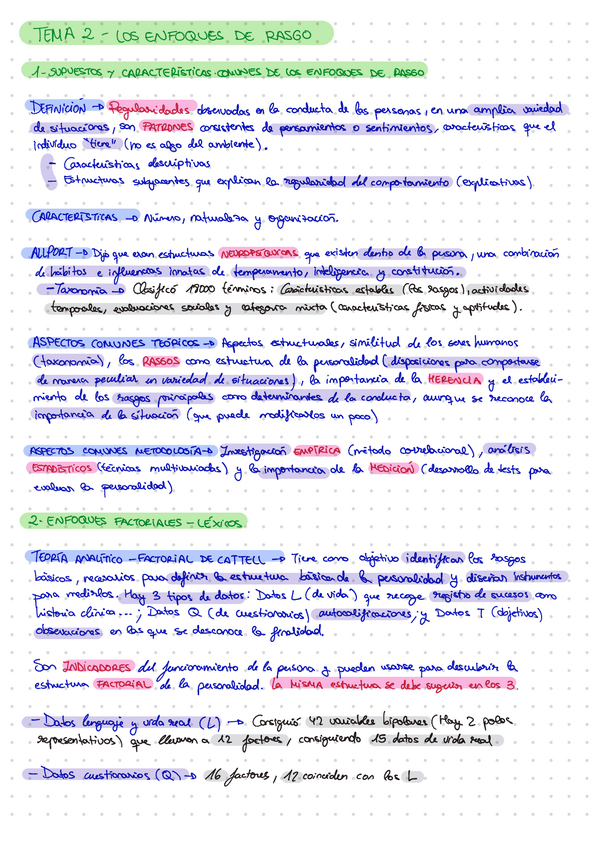 TEMA 2 - LOS ENFOQUES DE RASGO
1- SUPUESTOS Y CARACTERÍSTICAS COMUNES DE LOS ENFOQUES DE RASGO
DEFINICIÓN → Regularidades observadas en la conducta de las personas, en una amplia variedad
de situaciones, son PATRONES consistentes de pensamientos o sentimientos, características que el
individuo "tiene" (no es algo del ambiente).
- Características descriptivas
- Estructuras subyacentes que explican la regularidad del comportamiento (explicativas)
CARACTERÍSTICAS → Número, naturaleza y organización.
ALLPORT → Dijo que eran estructuras NEUROPSÍQUICAS que existen dentro de la persona, una combinación
de hábitos e influencias innatas de temperamento, inteligencia y constitución.
- Taxonomía → Clasificó 18000 términos: Características estables (los rasgos), actividades
temporales, evaluaciones sociales y categoría mixta (características físicas y aptitudes).
ASPECTOS COMUNES TEÓRICOS → Aspectos estructurales, similitud de los seres humanos
(taxonomía), los RASGOS como estructura de la personalidad (disposiciones para comportarse
de manera peculiar en variedad de situaciones), la importancia de la HERENCIA y el estableci-
miento de los rasgos principales como determinantes de la conducta, aunque se reconoce la
importancia de la situación (que puede modificarlos un poco)
ASPECTOS COMUNES METODOLOGÍA → Investigación EMPÍRICA (método correlacional), análisis
ESTADÍSTICOS (técnicas multivariadas) y la importancia de la MEDICIÓN (desarrollo de tests para
evaluar la personalidad)
2- ENFOQUES FACTORIALES - LÉXICOS
TEORÍA ANALÍTICO - FACTORIAL DE CATTELL → Tiene como objetivo identificar los rasgos
básicos, necesarios para definir la estructura básica de la personalidad y diseñar instrumentos
para medirlos. Hay 3 tipos de datos: Datos L (de vida) que recoge registro de sucesos como
historia clínica...; Datos Q (de cuestionarios) autocalificaciones; y Datos T (objetivos)
observaciones en las que se desconoce la finalidad.
Son INDICADORES del funcionamiento de la persona y pueden usarse para descubrir la
estructura FACTORIAL de la personalidad. La MISMA estructura se debe sugerir en los 3.
- Datos lenguaje y vida real (L) → Consiguió 42 variables bipolares (Hay 2 polos
representativos) que llevaron a 12 factores, consiguiendo 15 datos de vida real
- Datos cuestionarios (Q) → 16 factores, 12 coinciden con los L